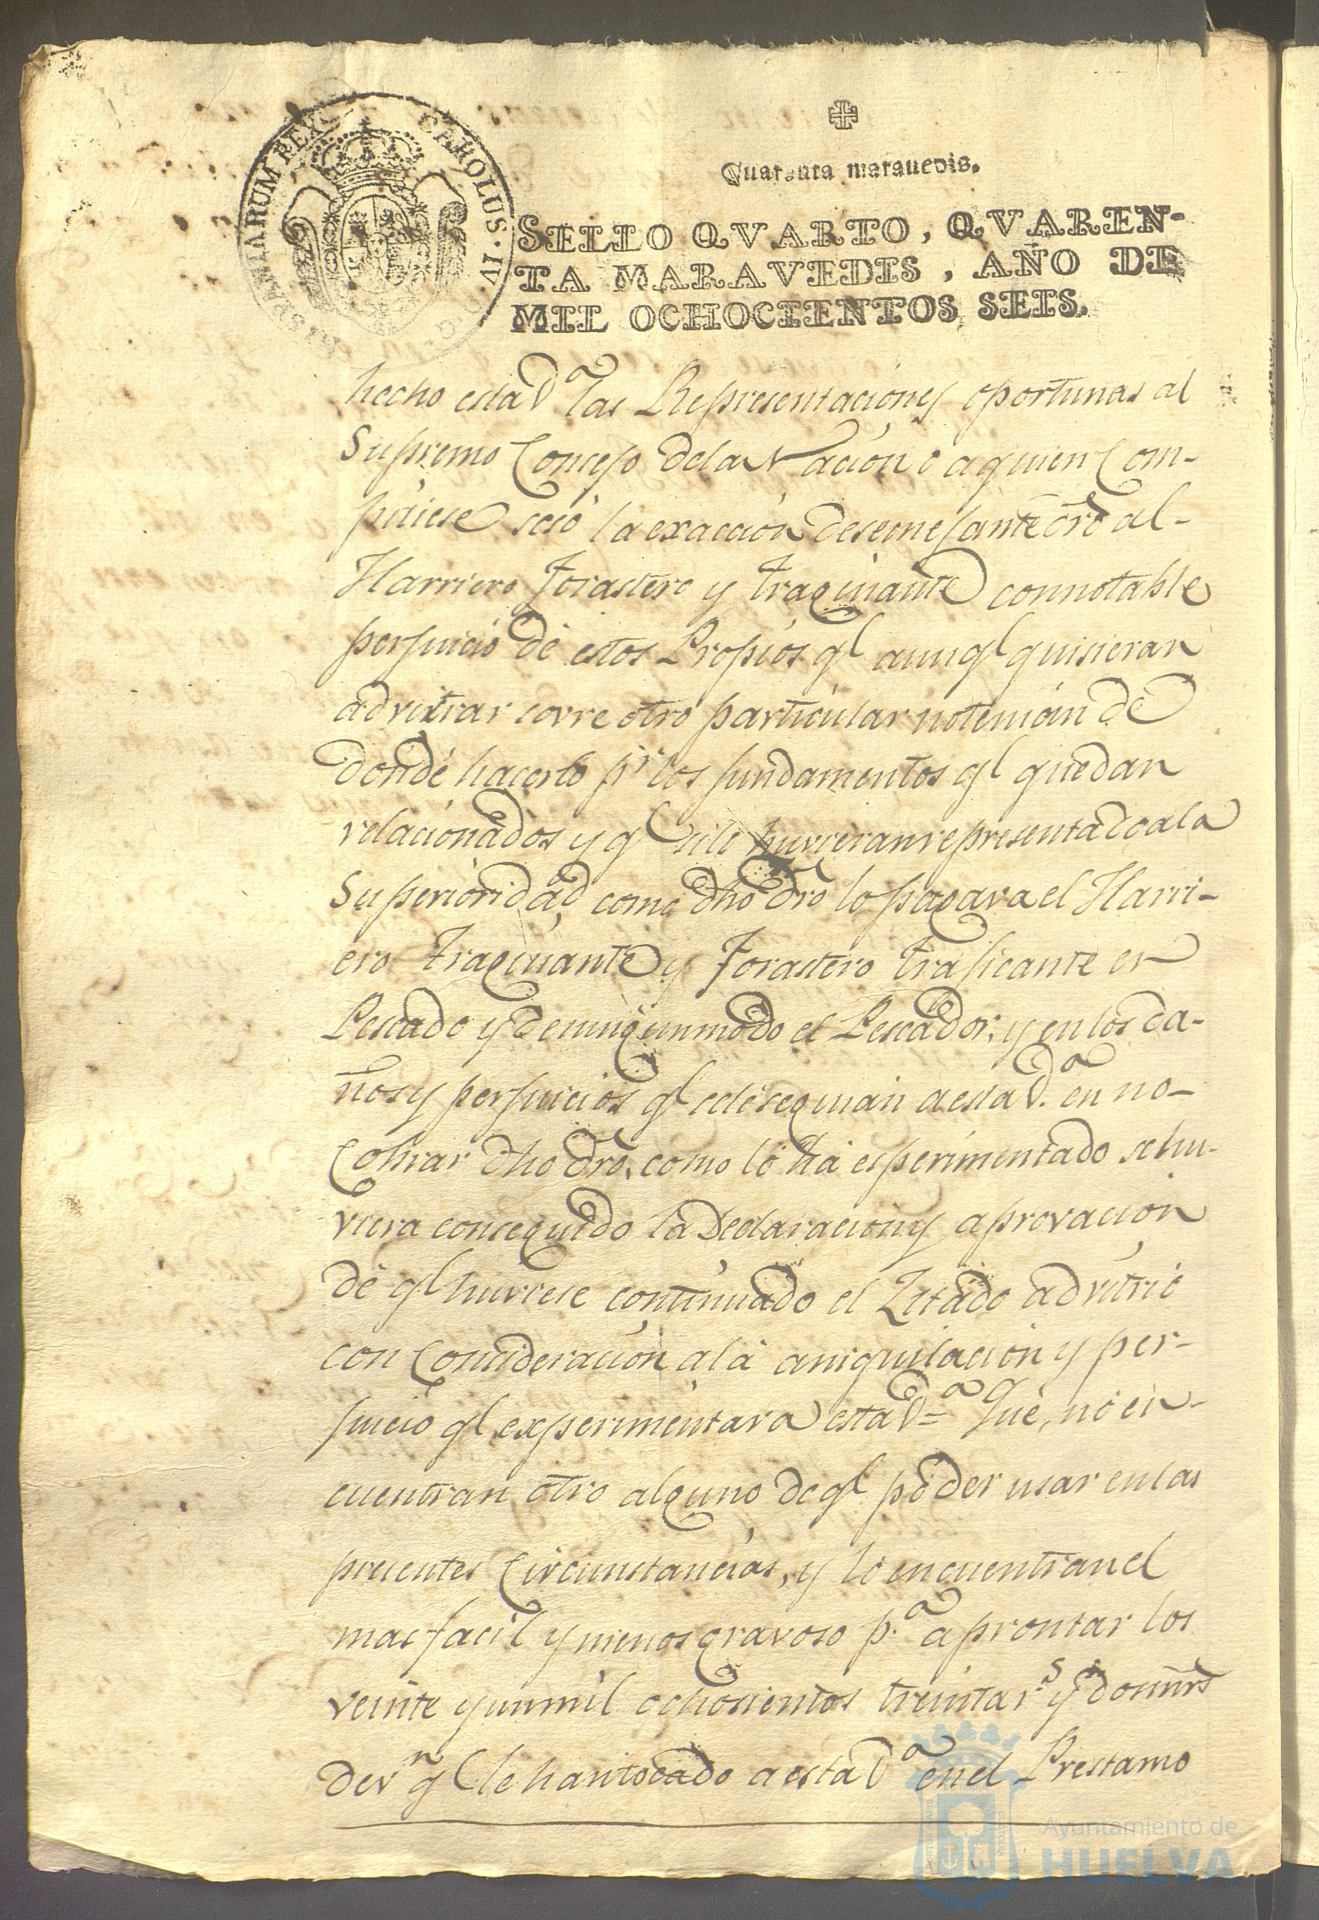 HISPANIARUM REX CAROLUS·IV·D·G·
Quarenta marauedis.
SELLO QVARTO, QVAREN-
TA MARAVEDIS, AÑO DE
MIL OCHOCIENTOS SEIS.
hecho esta Vª las Representaciones oportunas al
Supremo Consejo de la Nacion o a quien Com-
petiese sesó la exaccion de semejante dro al
Harriero Forastero y Traginante con notable
perjuicio de estos Propios ql aunql quisieran
advitrar sovre otro particular no tenian de
donde hacerlo pr los fundamentos ql quedan
relacionados y ql si lo huvieran representado a la
Superioridad, como dho dro lo pagava el Harri-
ero Traginante y Forastero traficante en
Pescado y de ningun modo el Pescador, y en los da-
ños y perjuicios ql se le seguian a esta Vª en no
Cobrar dho dro, como lo ha esperimentado se hu-
viera conseguido la Declaracion y aprovacion
de ql huviese continuado el Zitado advitrio
con Concideracion a la aniquilacion y per-
juicio ql experimentava esta Vª = Que, no en-
cuentran otro alguno de ql poder usar en las
precentes Circunstancias, y lo encuentran el
mas facil y menos gravoso pª aprontar los
veinte y un mil ochosientos treinta rs y dos mrs
de vn q le han tocado a esta Vª en el Prestamo
Ayuntamiento de
HUELVA